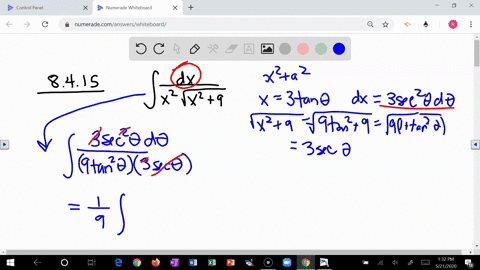 Control Panel
Numerade Whiteboard
numerade.com/answers/whiteboard/
8.4.15
∫ dx / (x² √(x²+9))
x²+a²
x = 3tanθ dx = 3sec²θ dθ
√(x²+9) = √(9tan²+9) = √(9(1+tan²θ))
= 3secθ
∫ 3sec²θ dθ / ((9tan²θ)(3secθ))
= 1/9 ∫
1:32 PM
5/21/2020